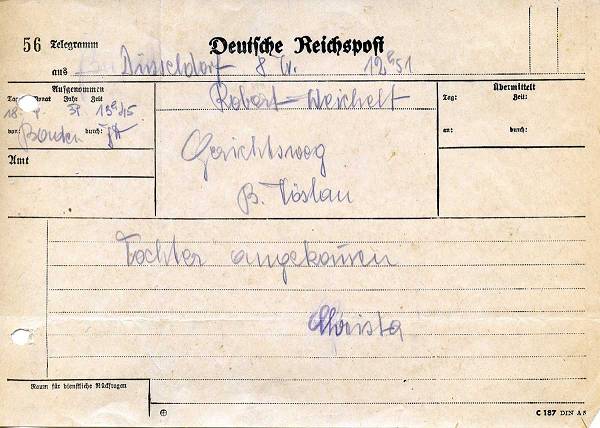 56 Telegramm Deutsche Reichspost
aus Düsseldorf 8 W. 12h51
Aufgenommen
Tag Monat Jahr Zeit
18. 13h45
von: Baden durch:
Amt
Robert Weichelt
Gerichtsweg
B. Vöslau
Übermittelt
Tag: Zeit:
an: durch:
Tochter angekommen
Christa
Raum für dienstliche Rückfragen
C 187 DIN A 5